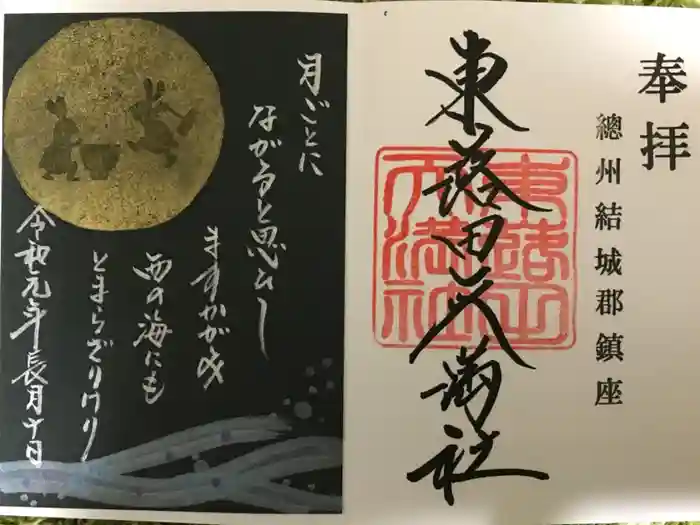 奉拝
總州結城郡鎮座
東蕗田天満社
東蕗田天満社
月ごとに
ながると思ひし
ますかがみ
西の海にも
とまらざりけり
令和元年長月十日